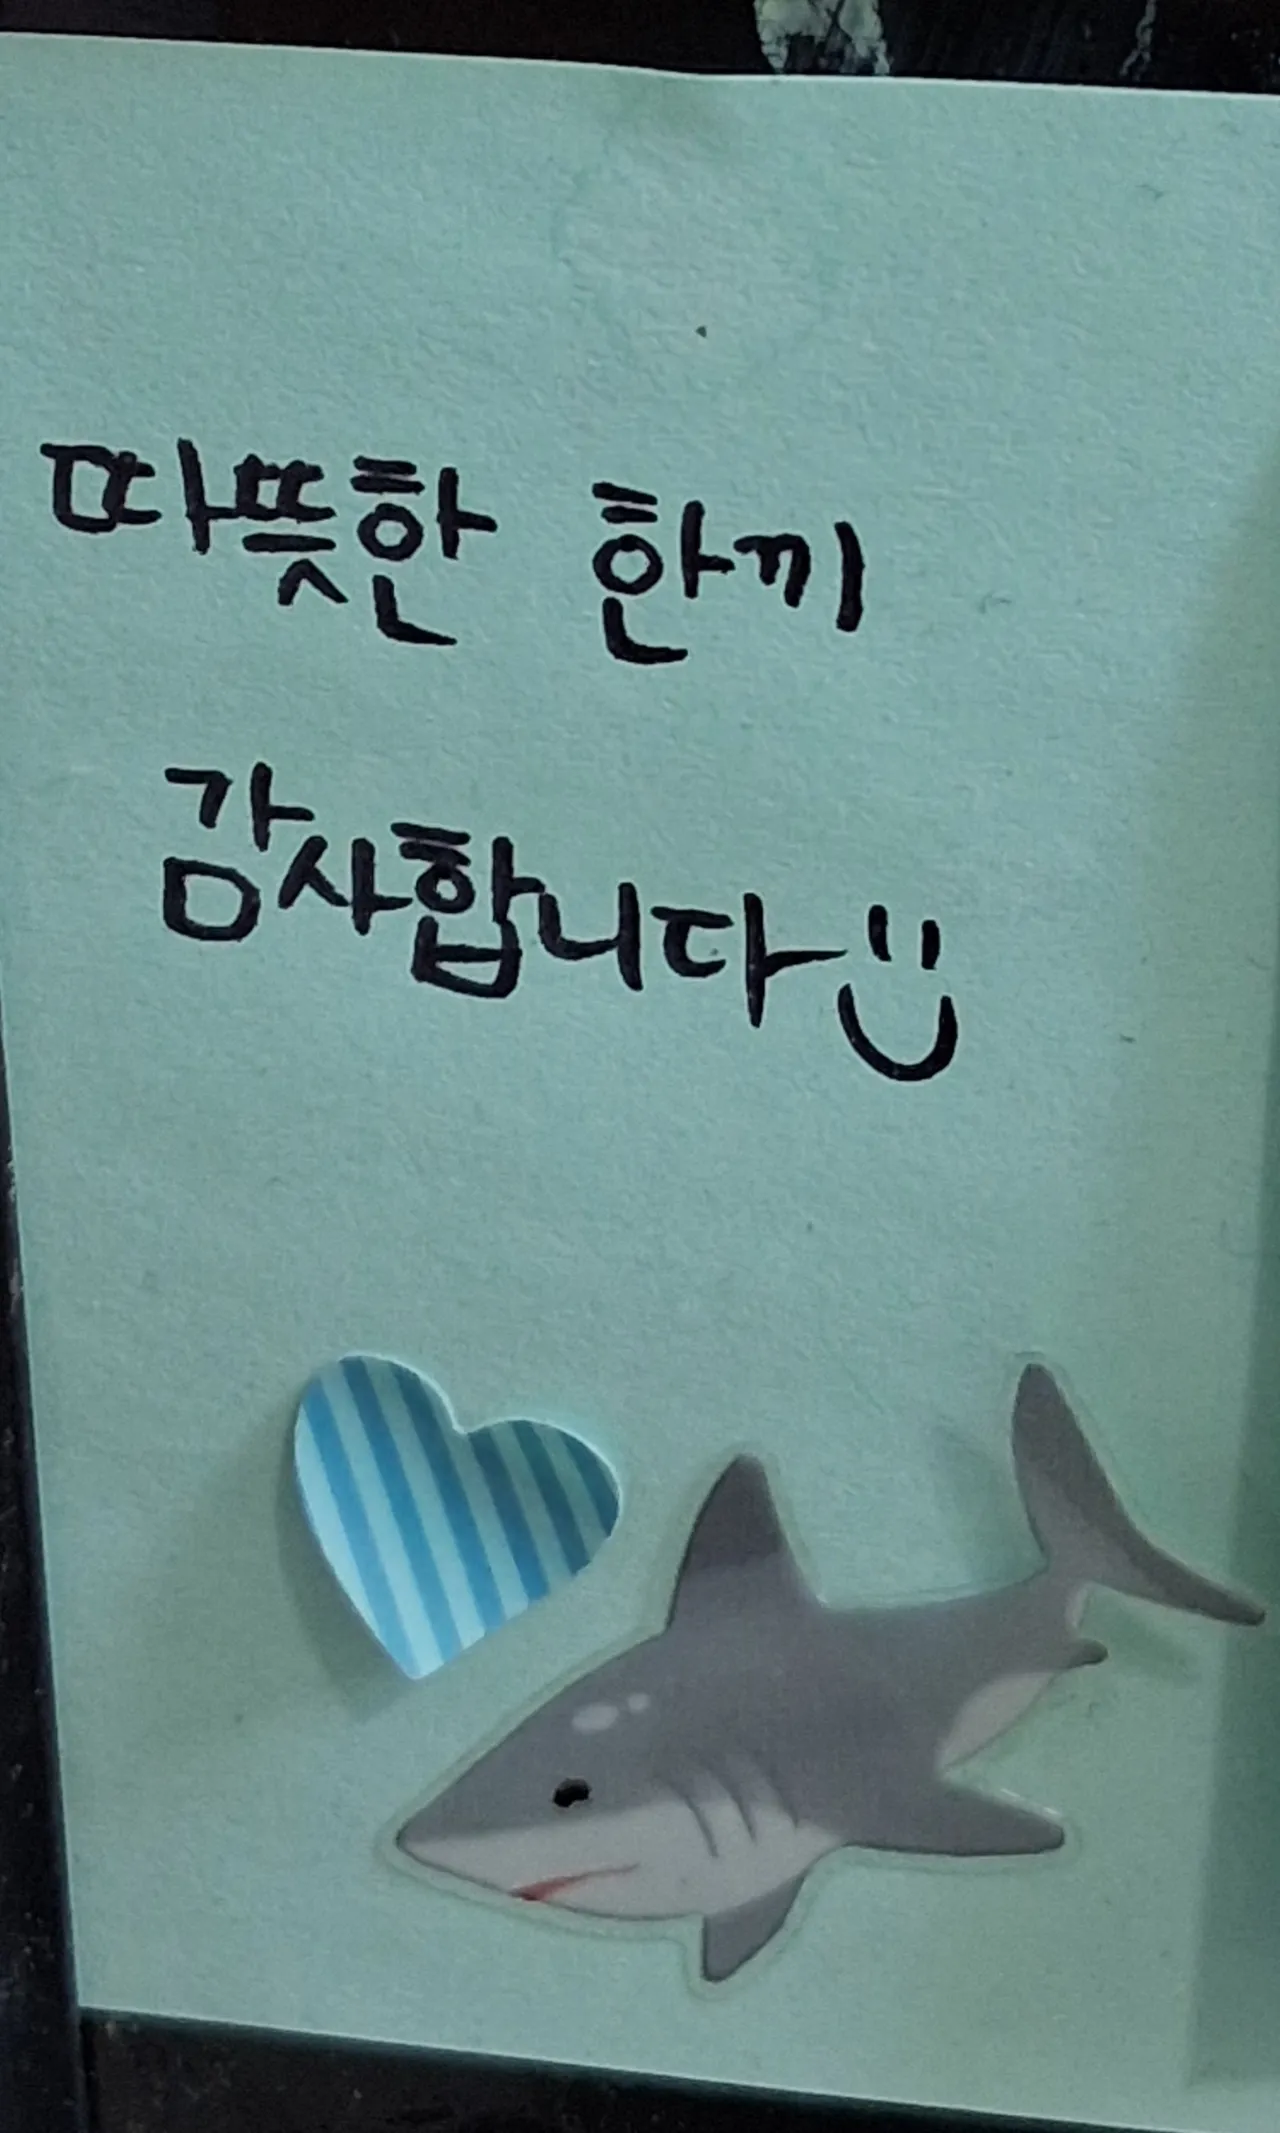 따뜻한 한끼
감사합니다